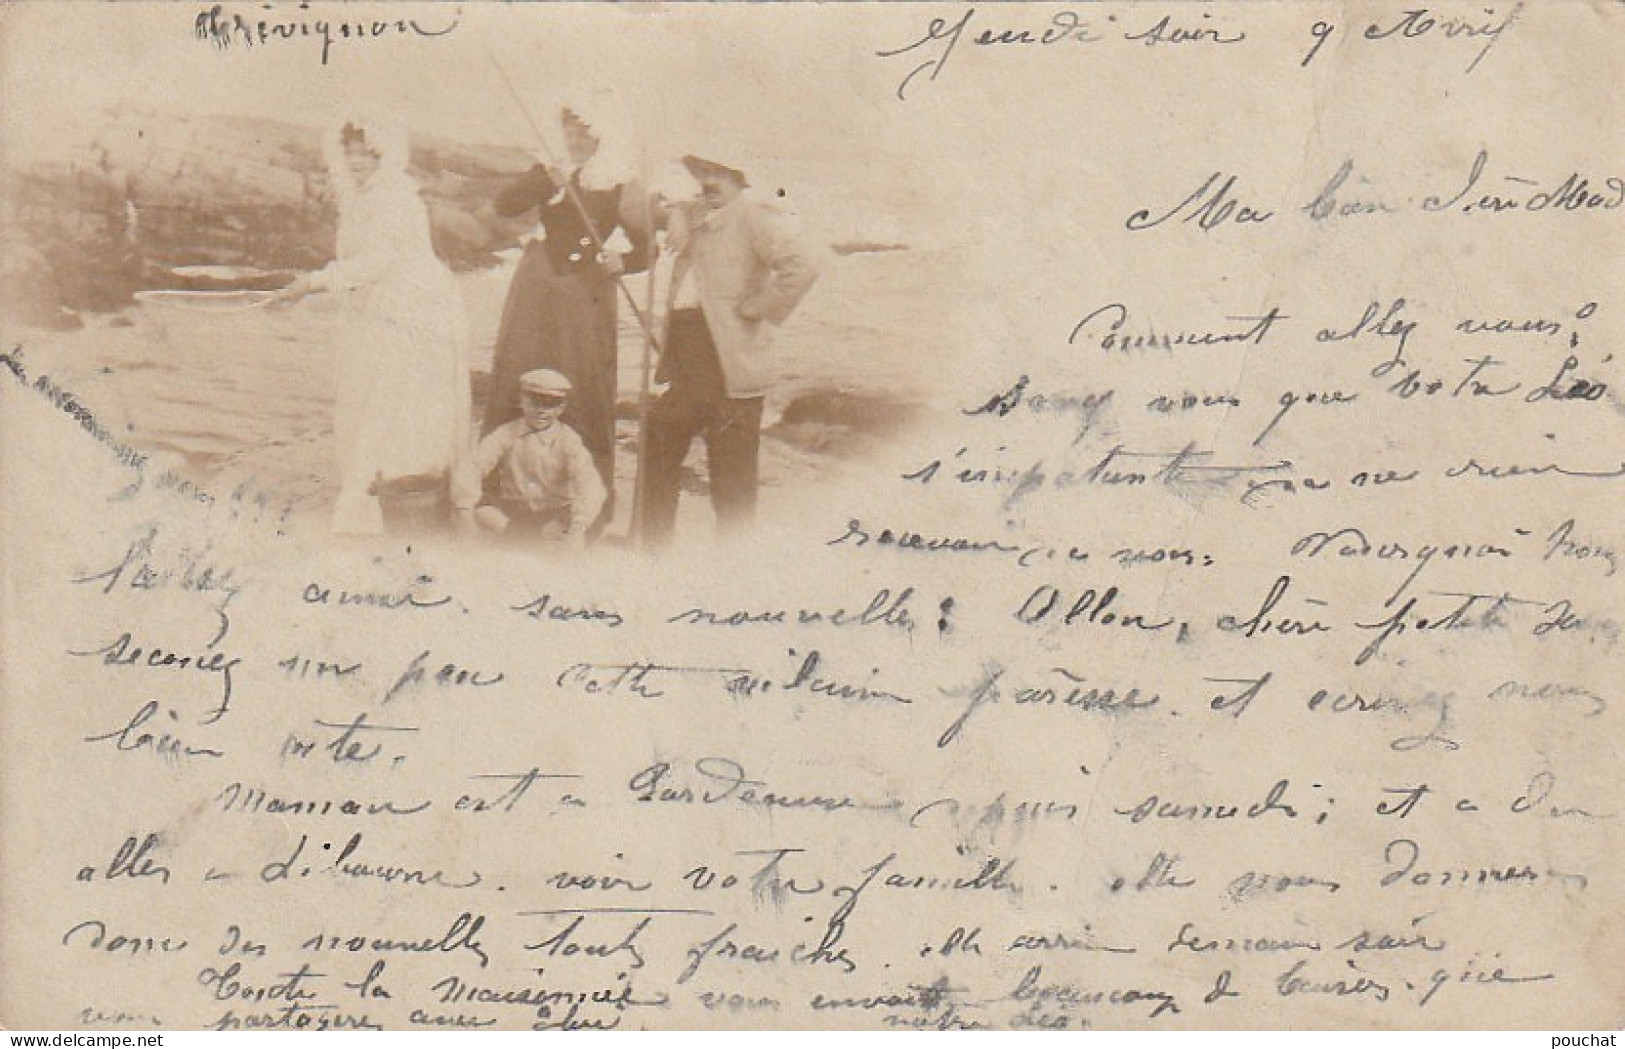 Trévignon
Jeudi soir 9 Avril
Ma bien
Comment allez vous?
vous que votre Léo
s'impatiente de ne rien
recevoir de vous.
ainsi sans nouvelles! Allons, chère petite
secouez un peu cette vilaine paresse et écrivez nous
bien vite.
Maman est à depuis samedi; et a du
aller à Libourne voir votre famille. elle nous donnera
donc des nouvelles toutes fraîches. elle arrive demain soir
Toute la maisonnée vous envoie beaucoup de baisers que
vous partagerez avec notre Léo.
© pouchat
www.delcampe.net